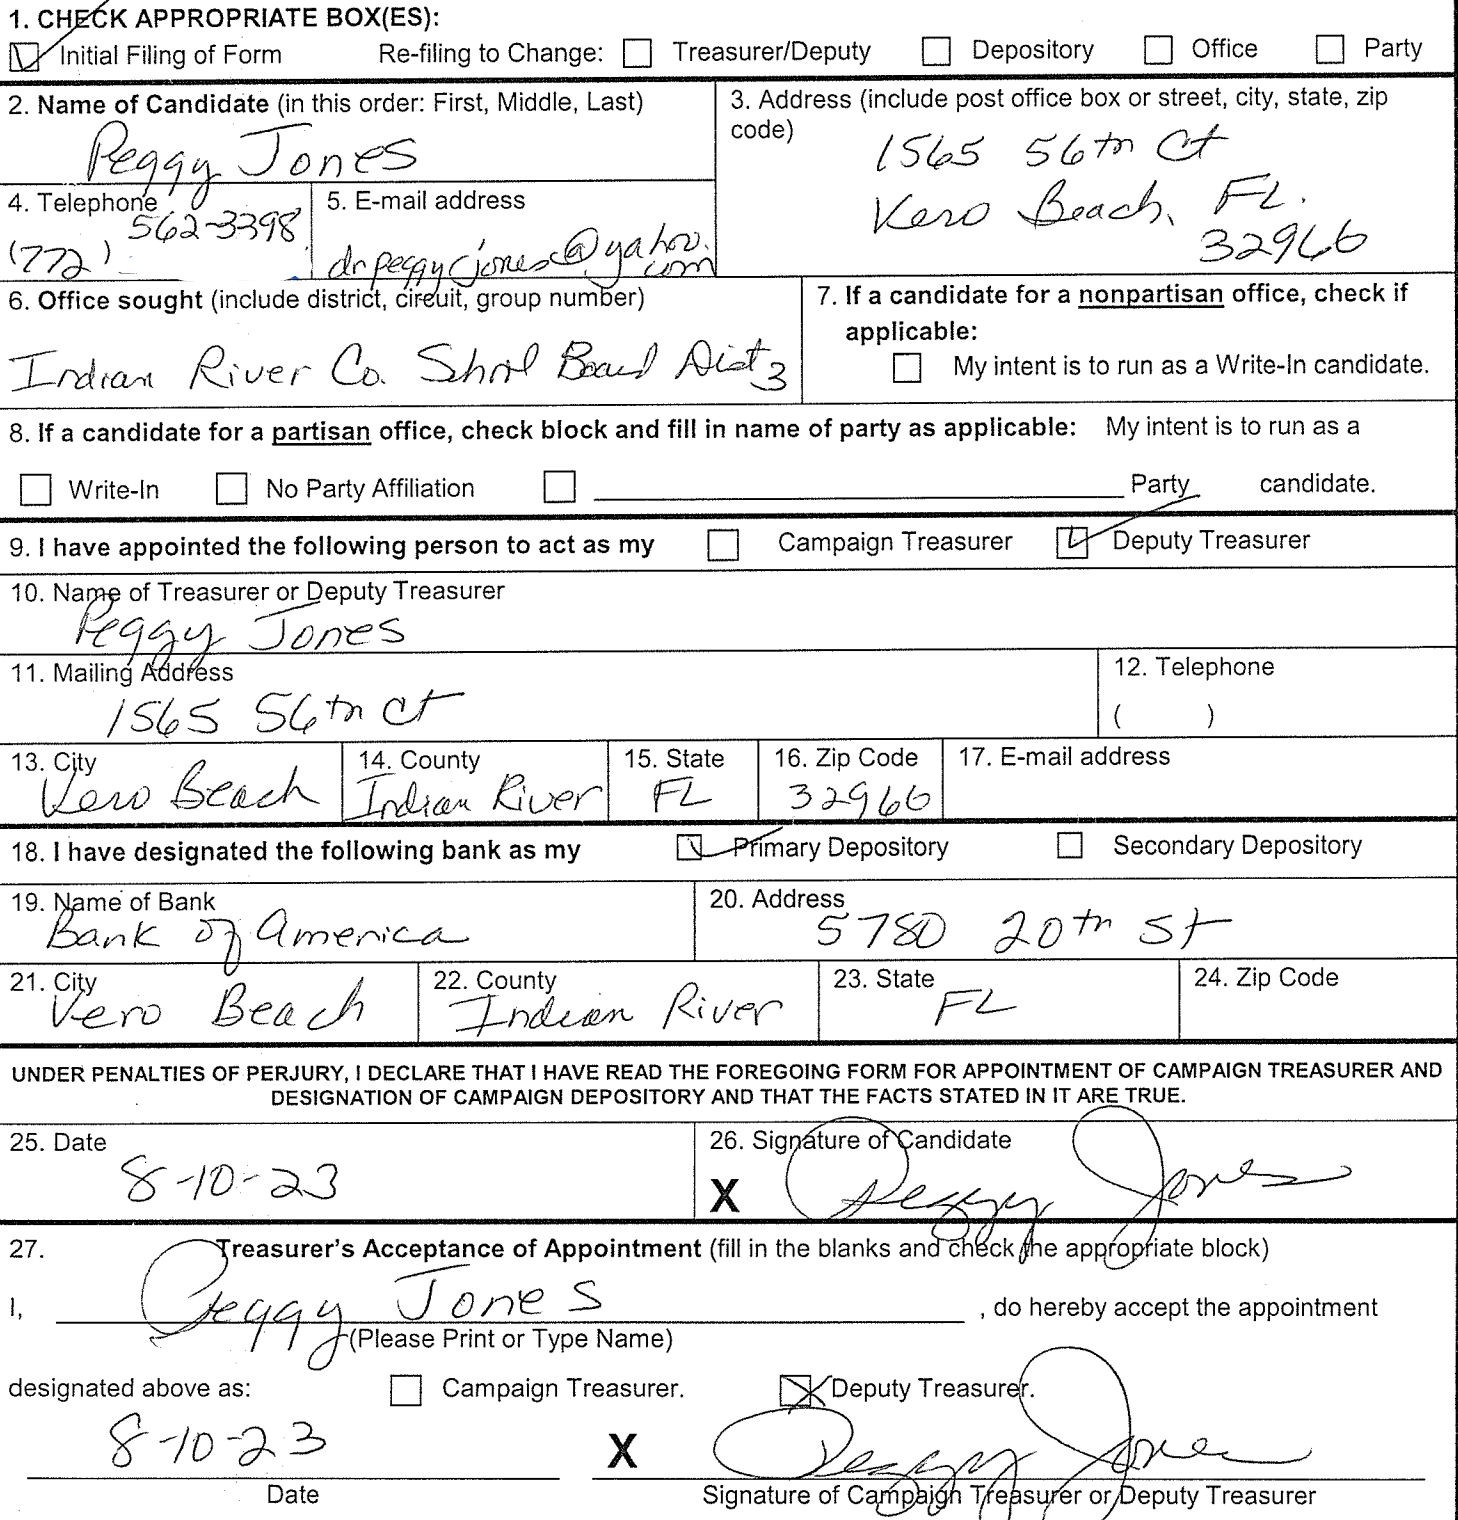 1. CHECK APPROPRIATE BOX(ES):
Initial Filing of Form Re-filing to Change: Treasurer/Deputy Depository Office Party
2. Name of Candidate (in this order: First, Middle, Last)
Peggy Jones
3. Address (include post office box or street, city, state, zip
code)
1565 56th Ct
Vero Beach, FL.
32966
4. Telephone
(772) 562-3398
5. E-mail address
drpeggyjones@yahoo.
com
6. Office sought (include district, circuit, group number)
Indian River Co. School Board Dist 3
7. If a candidate for a nonpartisan office, check if
applicable:
My intent is to run as a Write-In candidate.
8. If a candidate for a partisan office, check block and fill in name of party as applicable: My intent is to run as a
Write-In No Party Affiliation Party candidate.
9. I have appointed the following person to act as my Campaign Treasurer Deputy Treasurer
10. Name of Treasurer or Deputy Treasurer
Peggy Jones
11. Mailing Address
1565 56th Ct
12. Telephone
( )
13. City
Vero Beach
14. County
Indian River
15. State
FL
16. Zip Code
32966
17. E-mail address
18. I have designated the following bank as my Primary Depository Secondary Depository
19. Name of Bank
Bank of America
20. Address
5780 20th St
21. City
Vero Beach
22. County
Indian River
23. State
FL
24. Zip Code
UNDER PENALTIES OF PERJURY, I DECLARE THAT I HAVE READ THE FOREGOING FORM FOR APPOINTMENT OF CAMPAIGN TREASURER AND
DESIGNATION OF CAMPAIGN DEPOSITORY AND THAT THE FACTS STATED IN IT ARE TRUE.
25. Date
8-10-23
26. Signature of Candidate
X Peggy Jones
27. Treasurer's Acceptance of Appointment (fill in the blanks and check the appropriate block)
I, Peggy Jones , do hereby accept the appointment
(Please Print or Type Name)
designated above as: Campaign Treasurer. X Deputy Treasurer.
8-10-23 X Peggy Jones
Date Signature of Campaign Treasurer or Deputy Treasurer